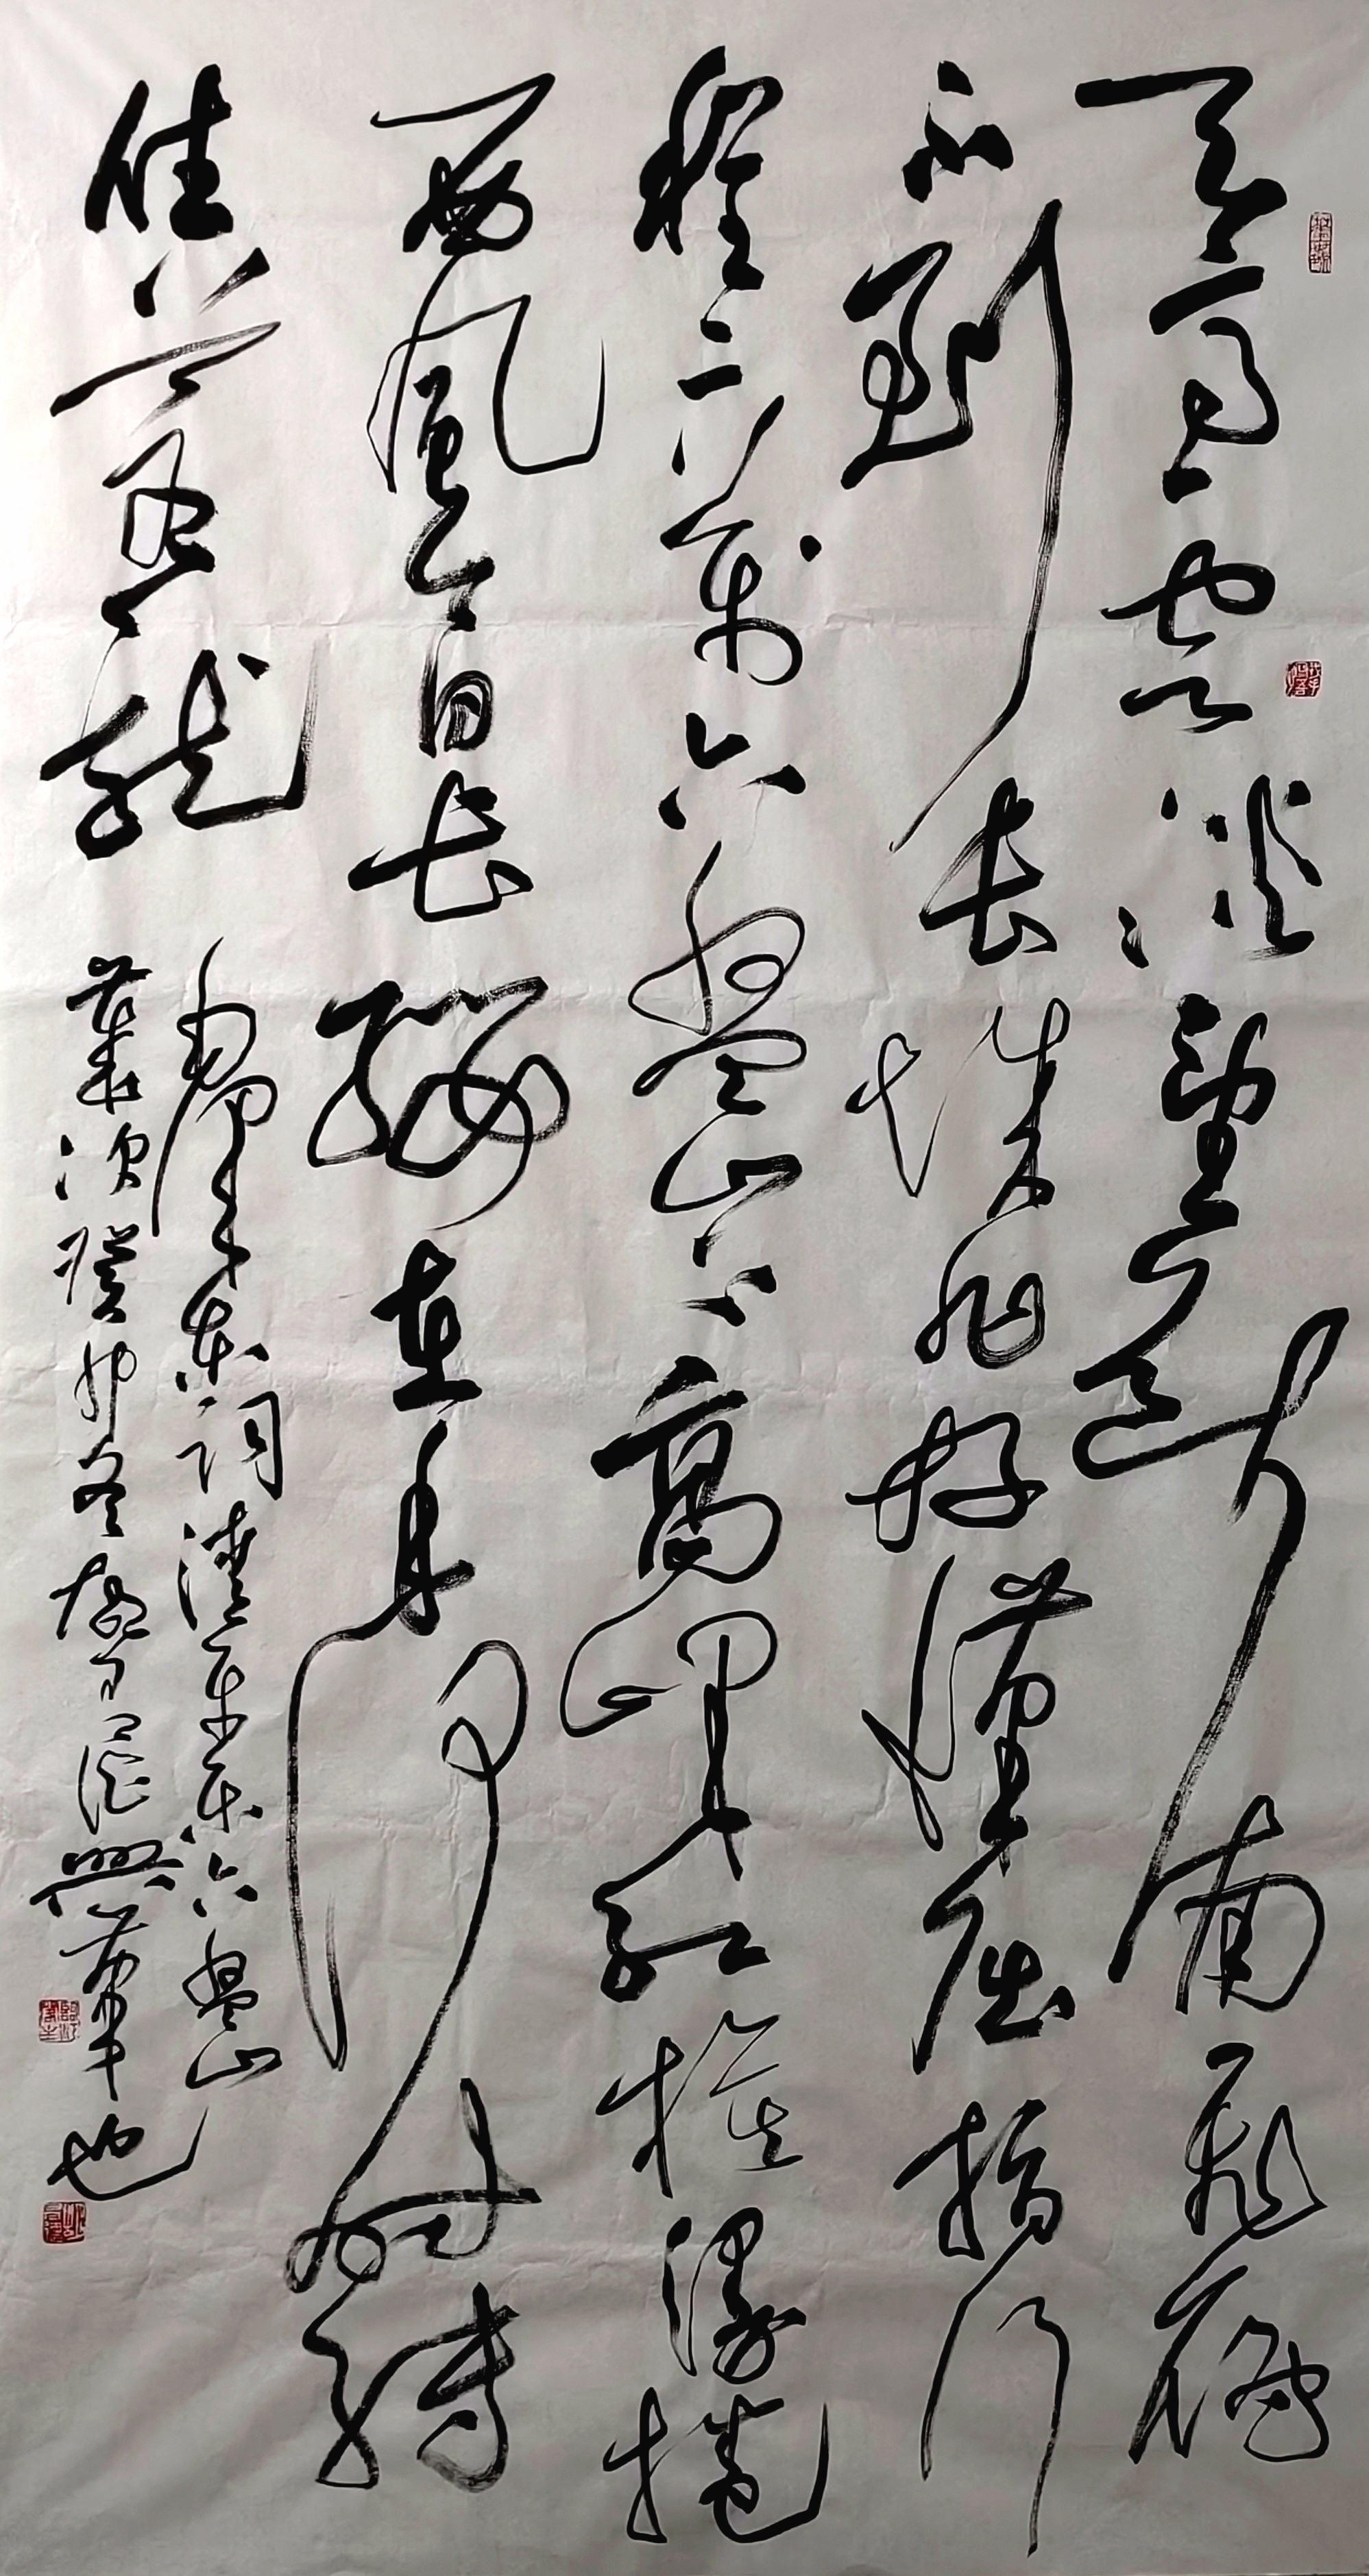 天高雲淡望斷南飛雁
不到長城非好漢屈指行
程二萬六盤山上高峰紅旗漫捲
西風今日長纓在手何時縛
住蒼龍
毛澤東詞清平樂六盤山
歲次癸卯冬興華也